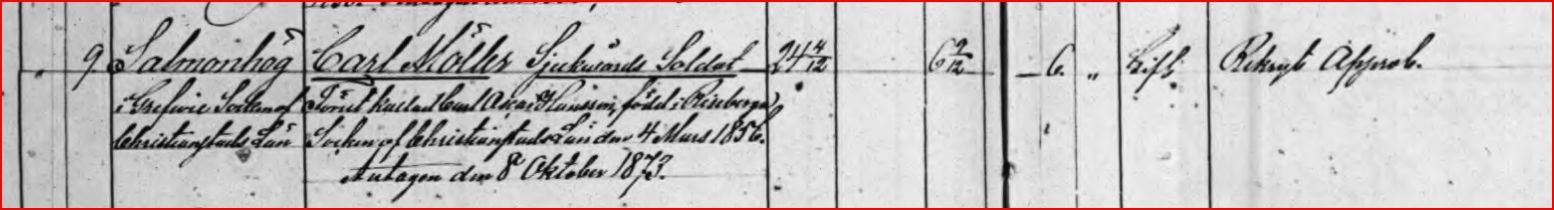 9. Salmonhög Carl Möller Sjukvårds Soldat 24 4/12 6 2/12 6. " Gift Rekryt Approb.
i Grefvie Socken af Förut kallad Carl Oscar Hansson, född i Riseberga
Christianstads Län Socken af Christianstads Län den 4 Mars 1856.
Antagen den 8 Oktober 1873.